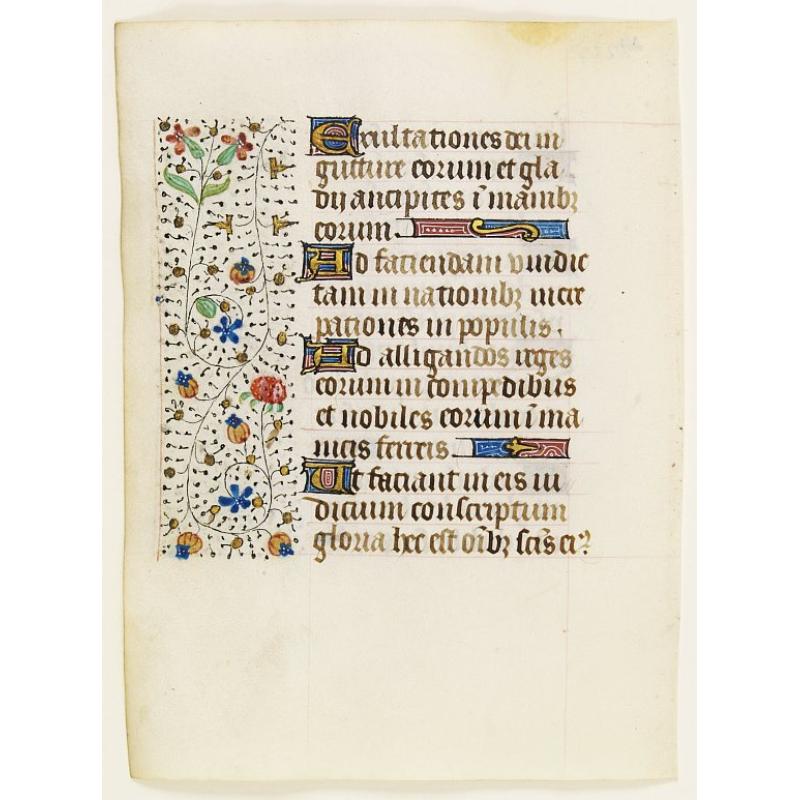 Exultationes dei in
gutture eorum et gla
dij ancipites ī manibꝫ
eorum
Ad faciendam vindic
tam in nationibꝫ incre
pationes in populis.
Ad alligandos reges
eorum in compedibus
et nobiles eorum ī ma
nicis ferreis
Ut faciant in eis iu
dicium conscriptum
gloria hec est oībꝫ scīs eiꝰ